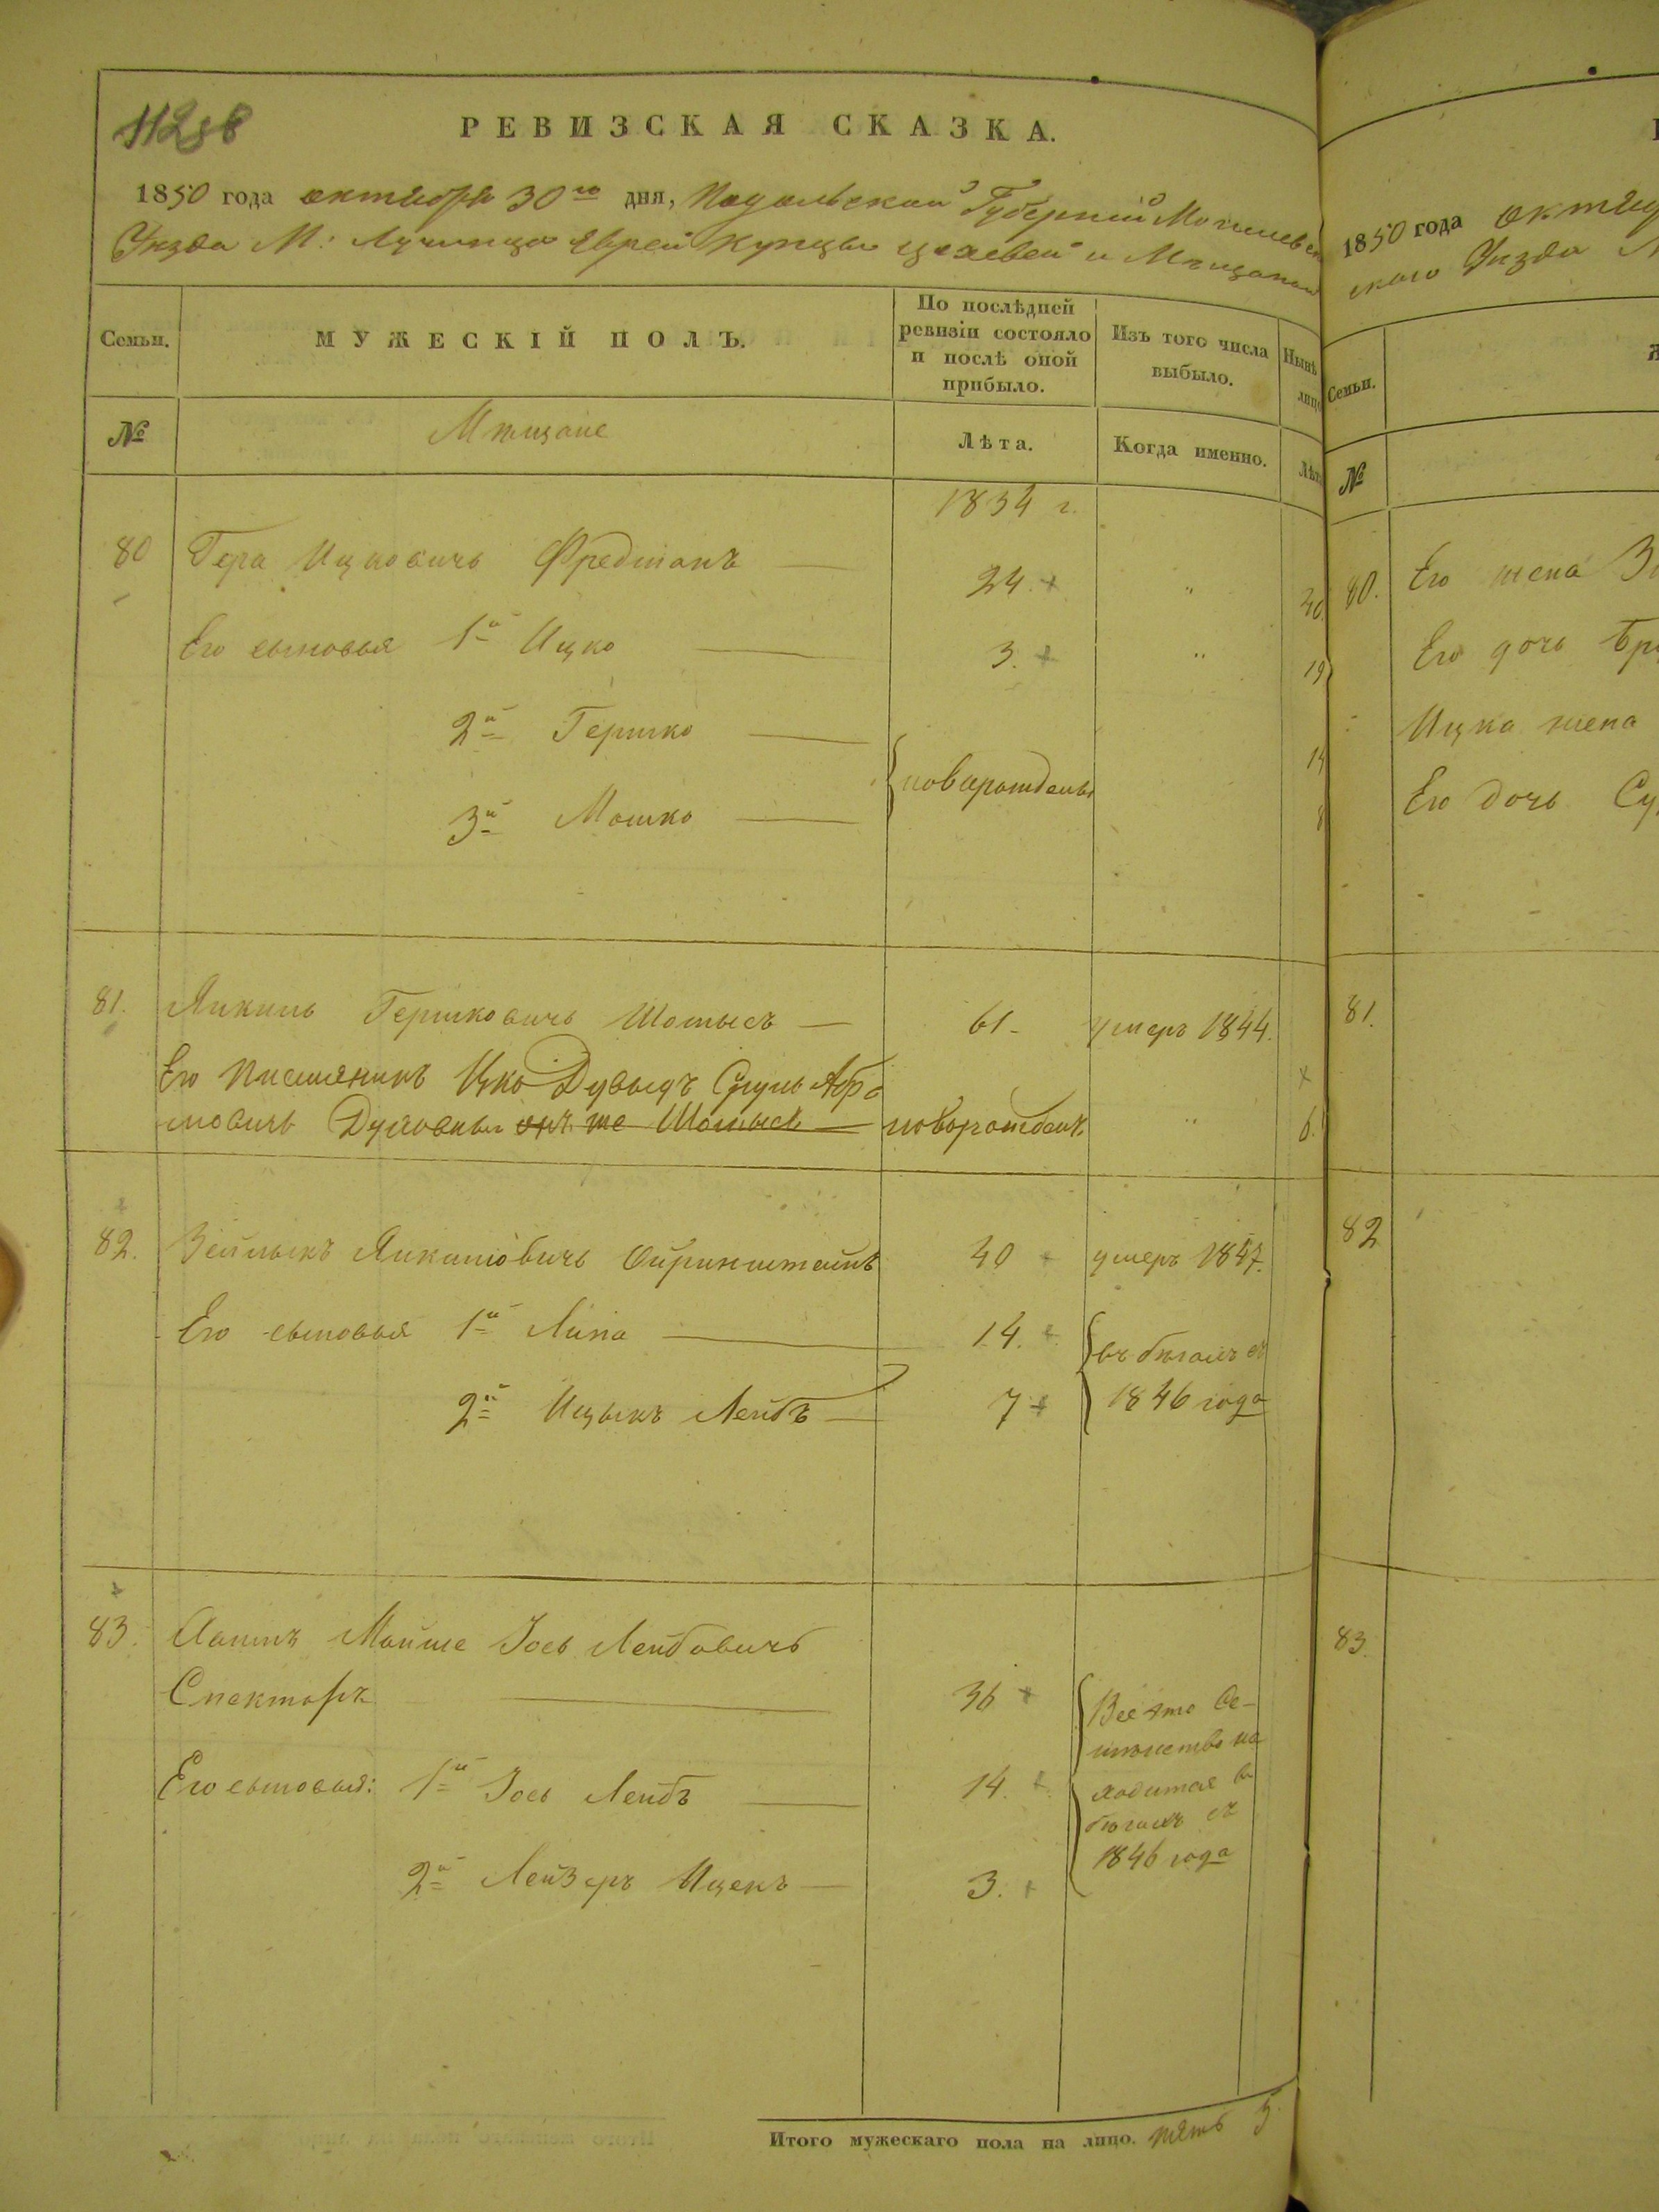 РЕВИЗСКАЯ СКАЗКА.
1850 года октября 30го дня, Подольской Губерніи Могилевск
Уезда М: Лучинца Еврей Купцы цеховей и Мещанъ
Семьи.
МУЖЕСКІЙ ПОЛЪ.
По послѣдней
ревизіи состояло
и послѣ оной
прибыло.
Изъ того числа
выбыло.
Нынѣ
лицо
№
Мещане
Лѣта.
Когда именно.
Лѣт
1834 г.
80 Гера Ицковичъ Фредманъ — 24. + " 40
Его сыновья 1й Ицко — 3. + " 19
2й Гершко — 14
новорожденъ
3й Мошко — 8
81. Янкиль Гершковичъ — 61 - умеръ 1844.
Его племяникъ Ицко Дувыдъ Сруль Абра
мовичъ онъ же новорожденъ " 6.
82. Зейлыкъ Янкиліовичъ 40 + умеръ 1847.
Его сыновья 1й Липа — 14. +
въ бѣгахъ съ
2й Ицыкъ Лейбъ — 7 +
1846 года
83. Мойше Іось Лейбовичъ
Спекторъ — 36 +
Все это Се-
мѣйство на
Его сыновья: 1й Іось Лейбъ — 14. +
ходится въ
бѣгахъ съ
1846 года
2й Лейзеръ Ицекъ — 3. +
Итого мужескаго пола на лицо. пять 5
1850 года октяб
ского Уезда
Семьи.
№
80. Его жена
Его дочь
Ицка жена
Его дочь
81.
82
83.